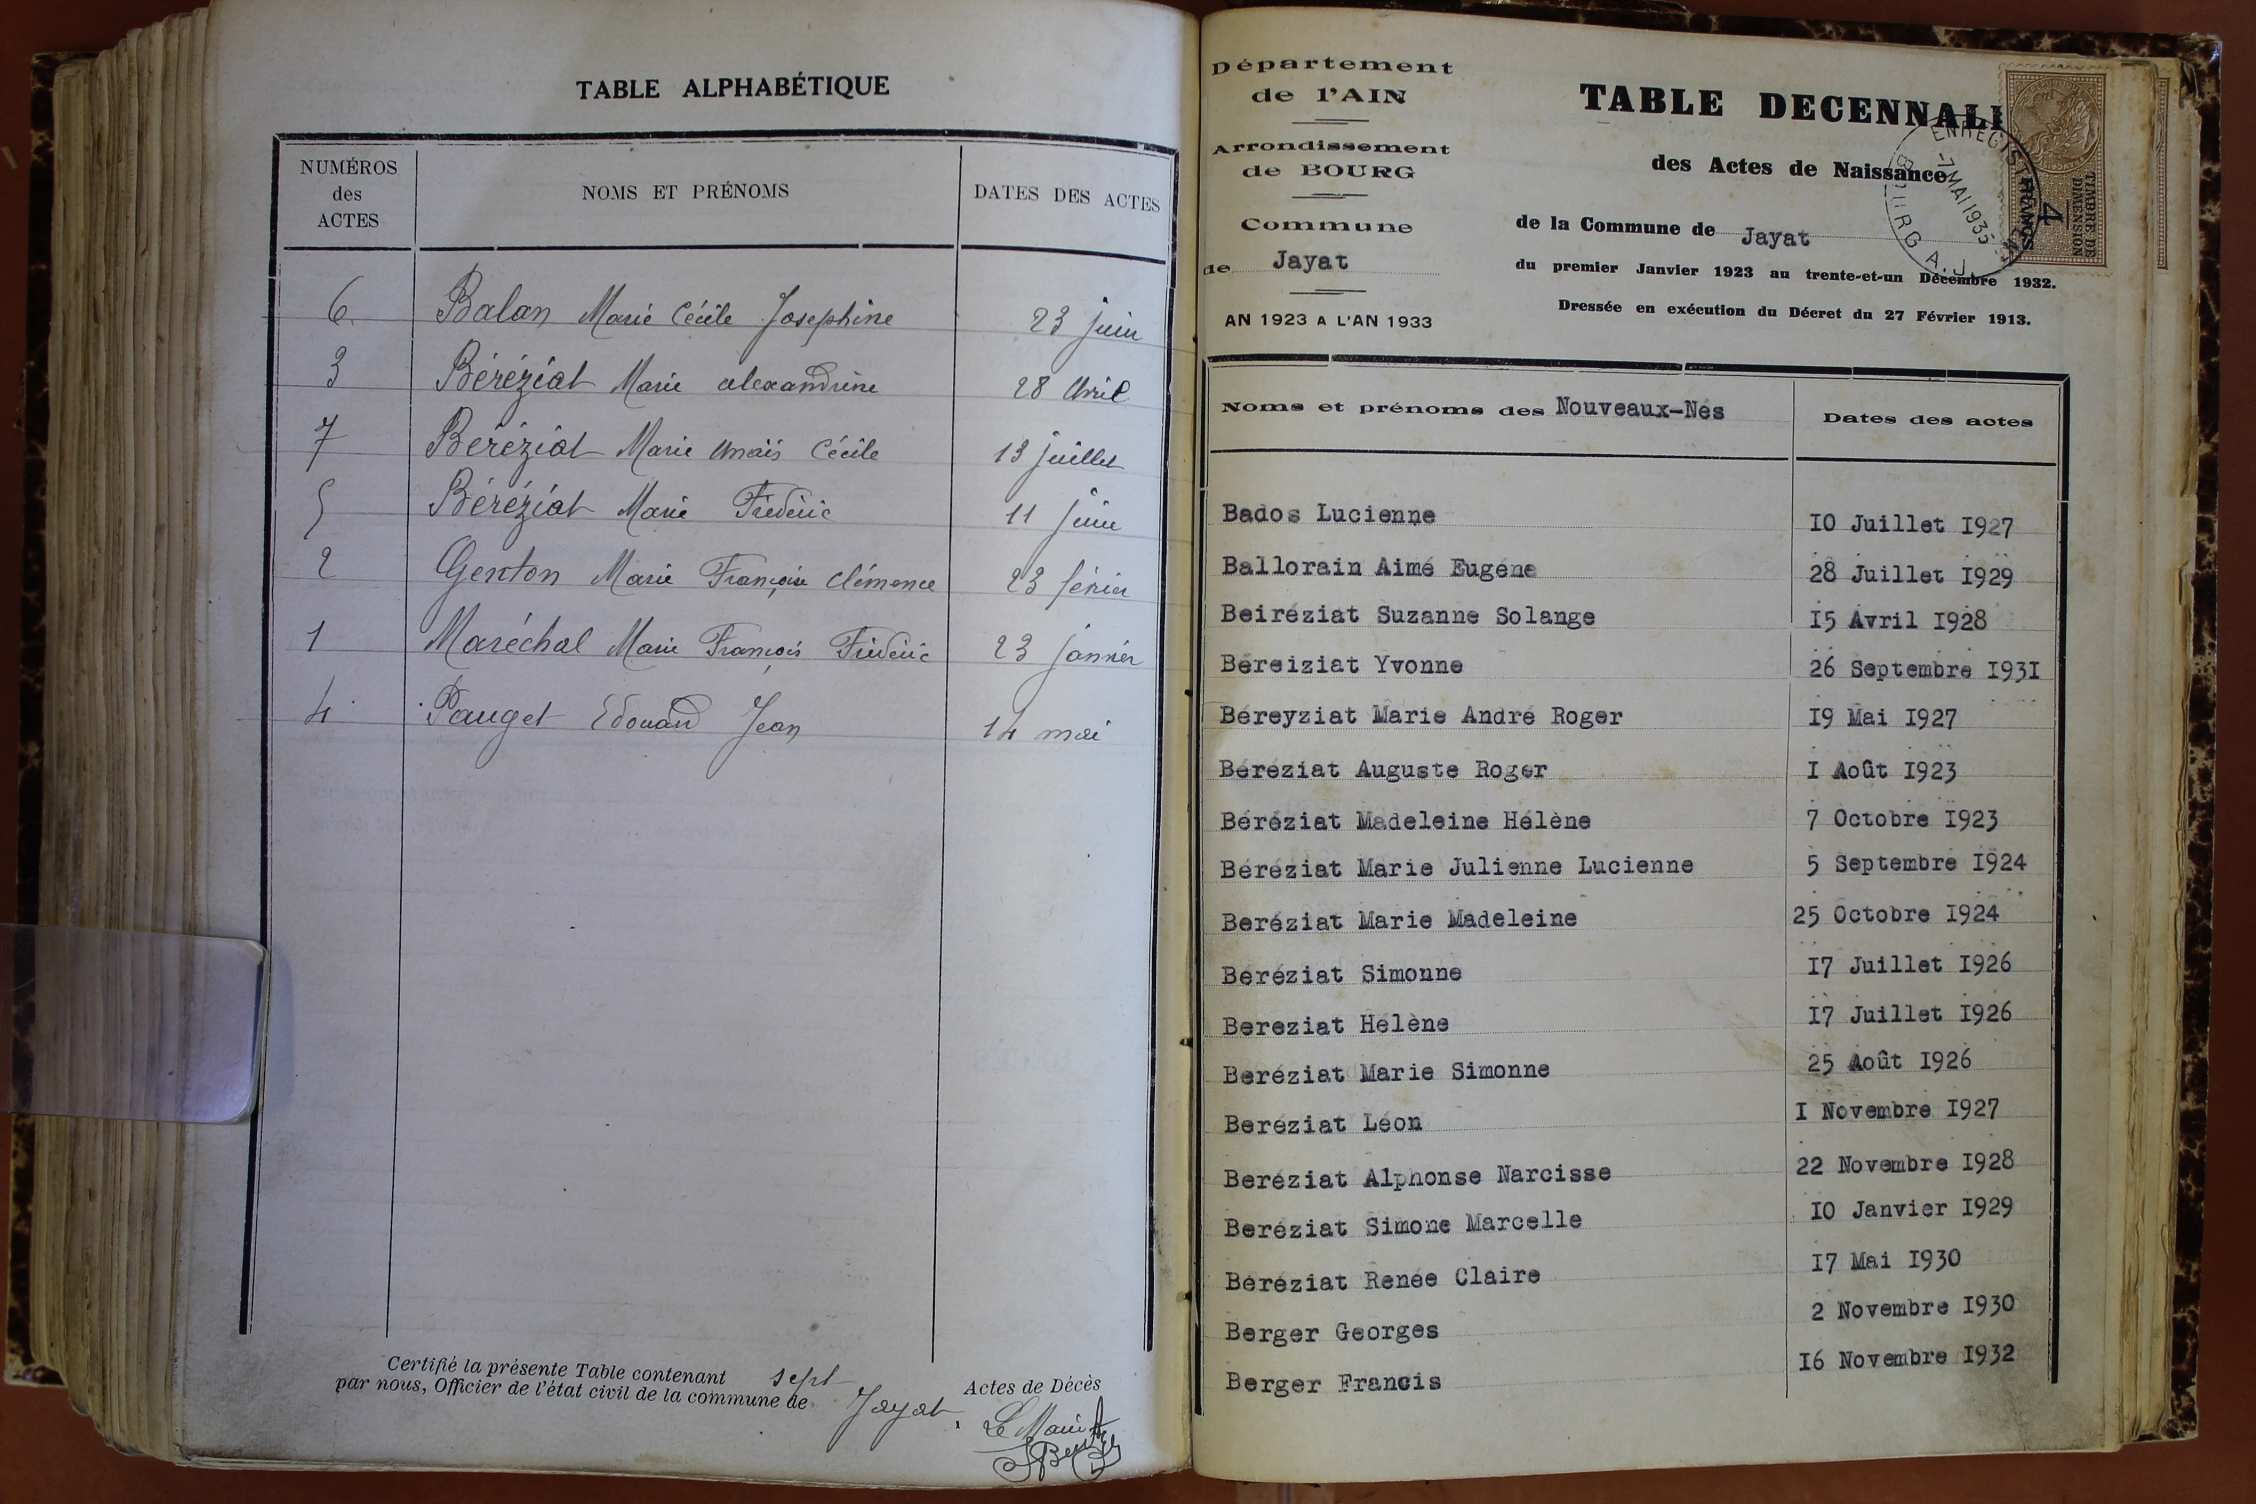 TABLE ALPHABÉTIQUE
NUMÉROS des ACTES NOMS ET PRÉNOMS DATES DES ACTES
6 Balan Marie Cécile Josephine 23 juin
3 Béréziat Marie alexandrine 28 Avril
7 Béréziat Marie Anaïs Cécile 13 juillet
5 Béréziat Marie Frédéric 11 juin
2 Genton Marie Françoise Clémence 23 février
1 Maréchal Marie François Frédéric 23 janvier
4 Pauget Edouard Jean 14 mai
Certifié la présente Table contenant sept Actes de Décès
par nous, Officier de l'état civil de la commune de Jayat.
Le Maire
Département
de l'AIN
Arrondissement
de BOURG
Commune
de Jayat
AN 1923 A L'AN 1933
TABLE DECENNALE
des Actes de Naissance
de la Commune de Jayat
du premier Janvier 1923 au trente-et-un Décembre 1932.
Dressée en exécution du Décret du 27 Février 1913.
ENREGISTREMENT
-7 MAI 1935
BOURG A.J.
4
FRANCS
TIMBRE DE
DIMENSION
Noms et prénoms des Nouveaux-Nés Dates des actes
Bados Lucienne 10 Juillet 1927
Ballorain Aimé Eugéne 28 Juillet 1929
Beiréziat Suzanne Solange 15 Avril 1928
Béreiziat Yvonne 26 Septembre 1931
Béreyziat Marie André Roger 19 Mai 1927
Béréziat Auguste Roger 1 Août 1923
Béréziat Madeleine Hélène 7 Octobre 1923
Béréziat Marie Julienne Lucienne 5 Septembre 1924
Beréziat Marie Madeleine 25 Octobre 1924
Béréziat Simonne 17 Juillet 1926
Bereziat Hélène 17 Juillet 1926
Beréziat Marie Simonne 25 Août 1926
Beréziat Léon 1 Novembre 1927
Beréziat Alphonse Narcisse 22 Novembre 1928
Beréziat Simone Marcelle 10 Janvier 1929
Béréziat Renée Claire 17 Mai 1930
Berger Georges 2 Novembre 1930
Berger Francis 16 Novembre 1932